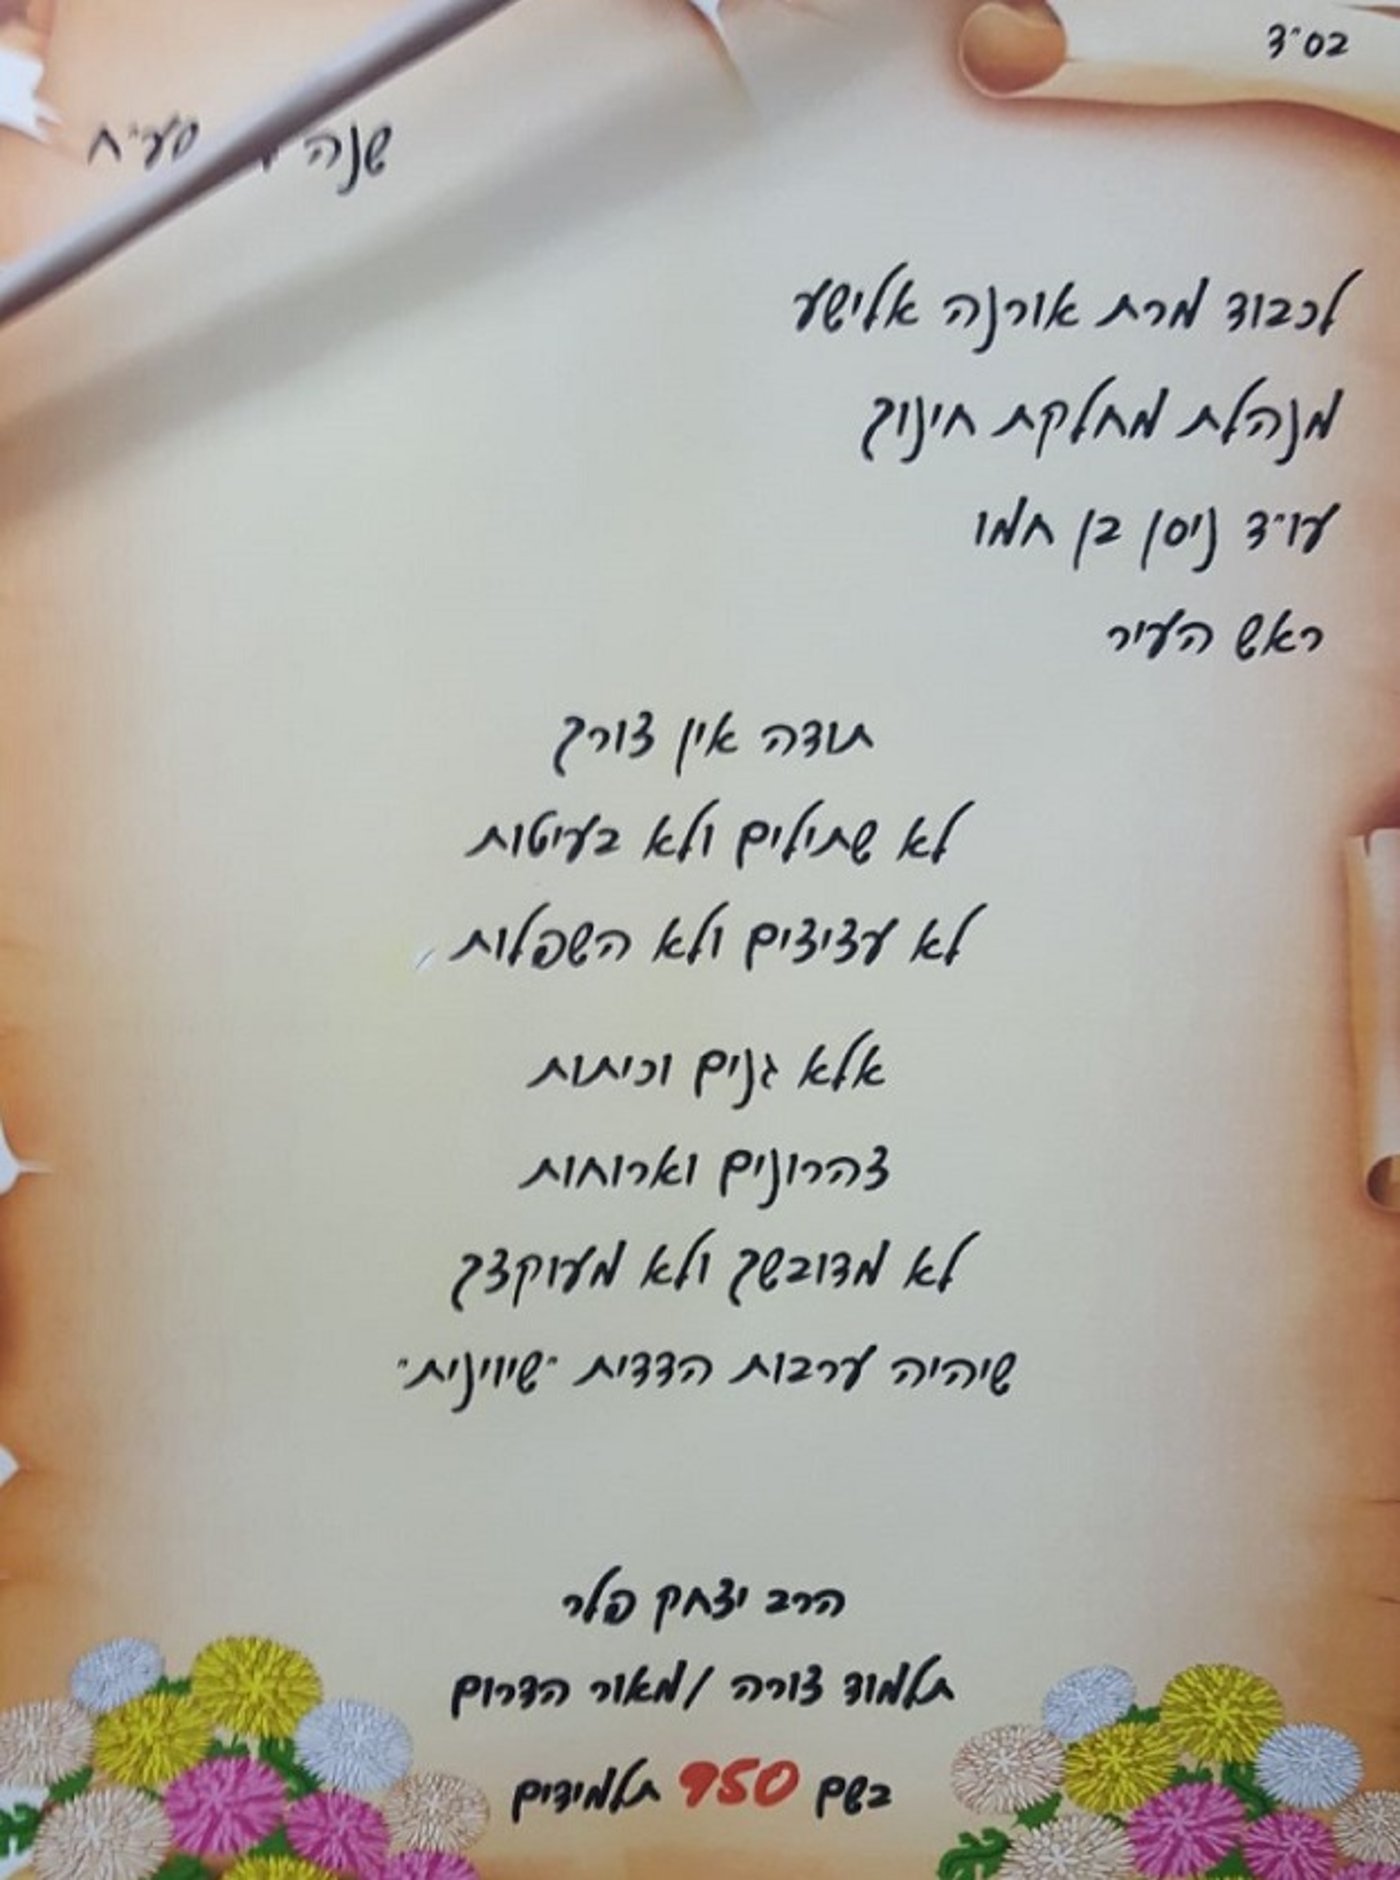 בס"ד
שנה סע"ח
לכבוד מרת אורנה אלישע
מנהלת מחלקת חינוך
עו"ד ניסן בן חמו
ראש העיר
תודה אין צורך
לא שתילים ולא בעיטות
לא עציצים ולא השפלות
אלא גנים וכיתות
צהרונים וארוחות
לא מדובשך ולא מעוקצך
שיהיה ערבות הדדית "שיווינית"
הרב יצחק פלר
תלמוד צורה /מאור הדרום
בשם 950 תלמידים